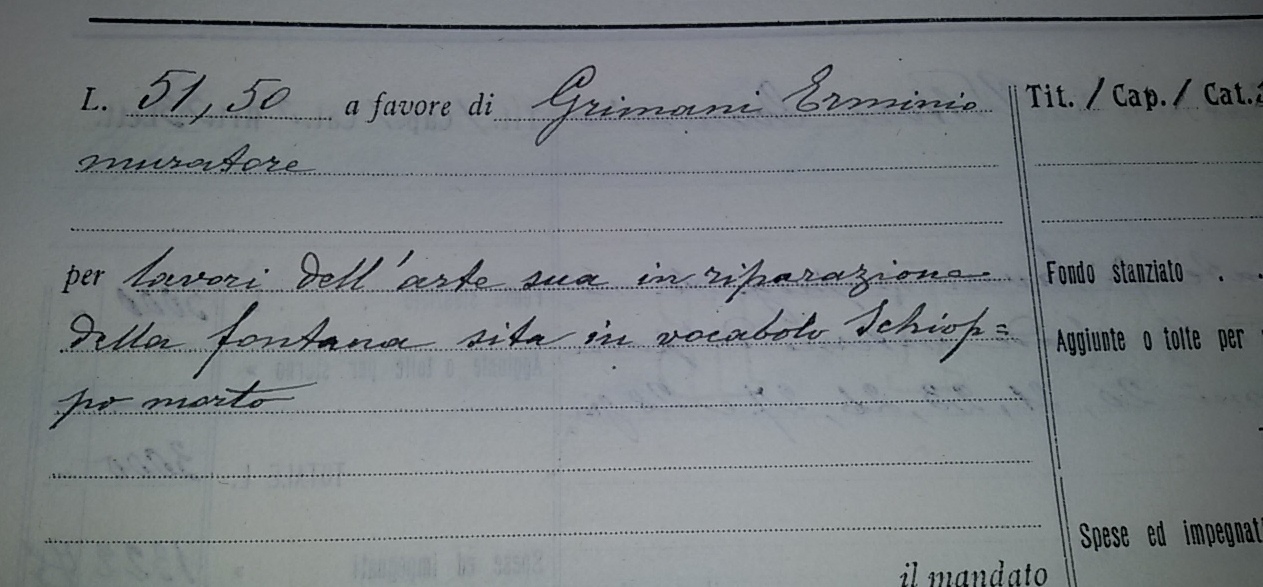 L. 51,50 a favore di Grimani Erminio
muratore
per lavori dell'arte sua in riparazione
della fontana sita in vocabolo Schiop=
po morto
Tit. / Cap. / Cat.
Fondo stanziato . .
Aggiunte o tolte per
Spese ed impegnat
il mandato